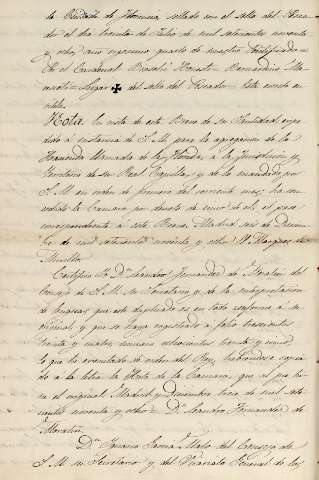 la Ciudad de Florencia, sellado con el sello del Pesca-
dor el dia treinta de Julio de mil setecientos noventa
y ocho, año vigesimo quarto de nuestro Pontificado =
Por el Cardenal Braschi Honesti = Bernardino Ma-
riscotti = Lugar ✠ del sello del Pescador = Este escrito en
vitela.
Nota. En vista de este Breve de su Santidad, expe-
dido a instancia de S. M. para la agregacion de la
Encomienda Llamada de las Floridas, á la jurisdiccion y
territorio de su Real Capilla; y de lo mandado por
S. M. en orden de primero del corriente mes, ha con-
cedido la Camara por decreto de cinco de él, el pase
correspondiente á este Breve. Madrid seis de Diciem-
bre de mil setecientos noventa y ocho = El Marques de
Murillo.
Certifico Yo Dn. Leandro Fernandez de Moratin del
Consejo de S. M. su Secretario y de la interpretacion
de lenguas, que este duplicado es en todo conforme á su
original, y que se haya registrado a folio trescientos
treinta y quatro
lo que he executado de orden del Rey, habiendose copia-
do á la letra la Nota de la Camara, que el que tie-
ne el original. Madrid y Diciembre trece de mil sete-
cientos noventa y ocho = Dn. Leandro Fernandez de
Moratin.
Dn. Ignacio Garcia Malo del Consejo de
S. M. su Secretario y del Vicariato General de los